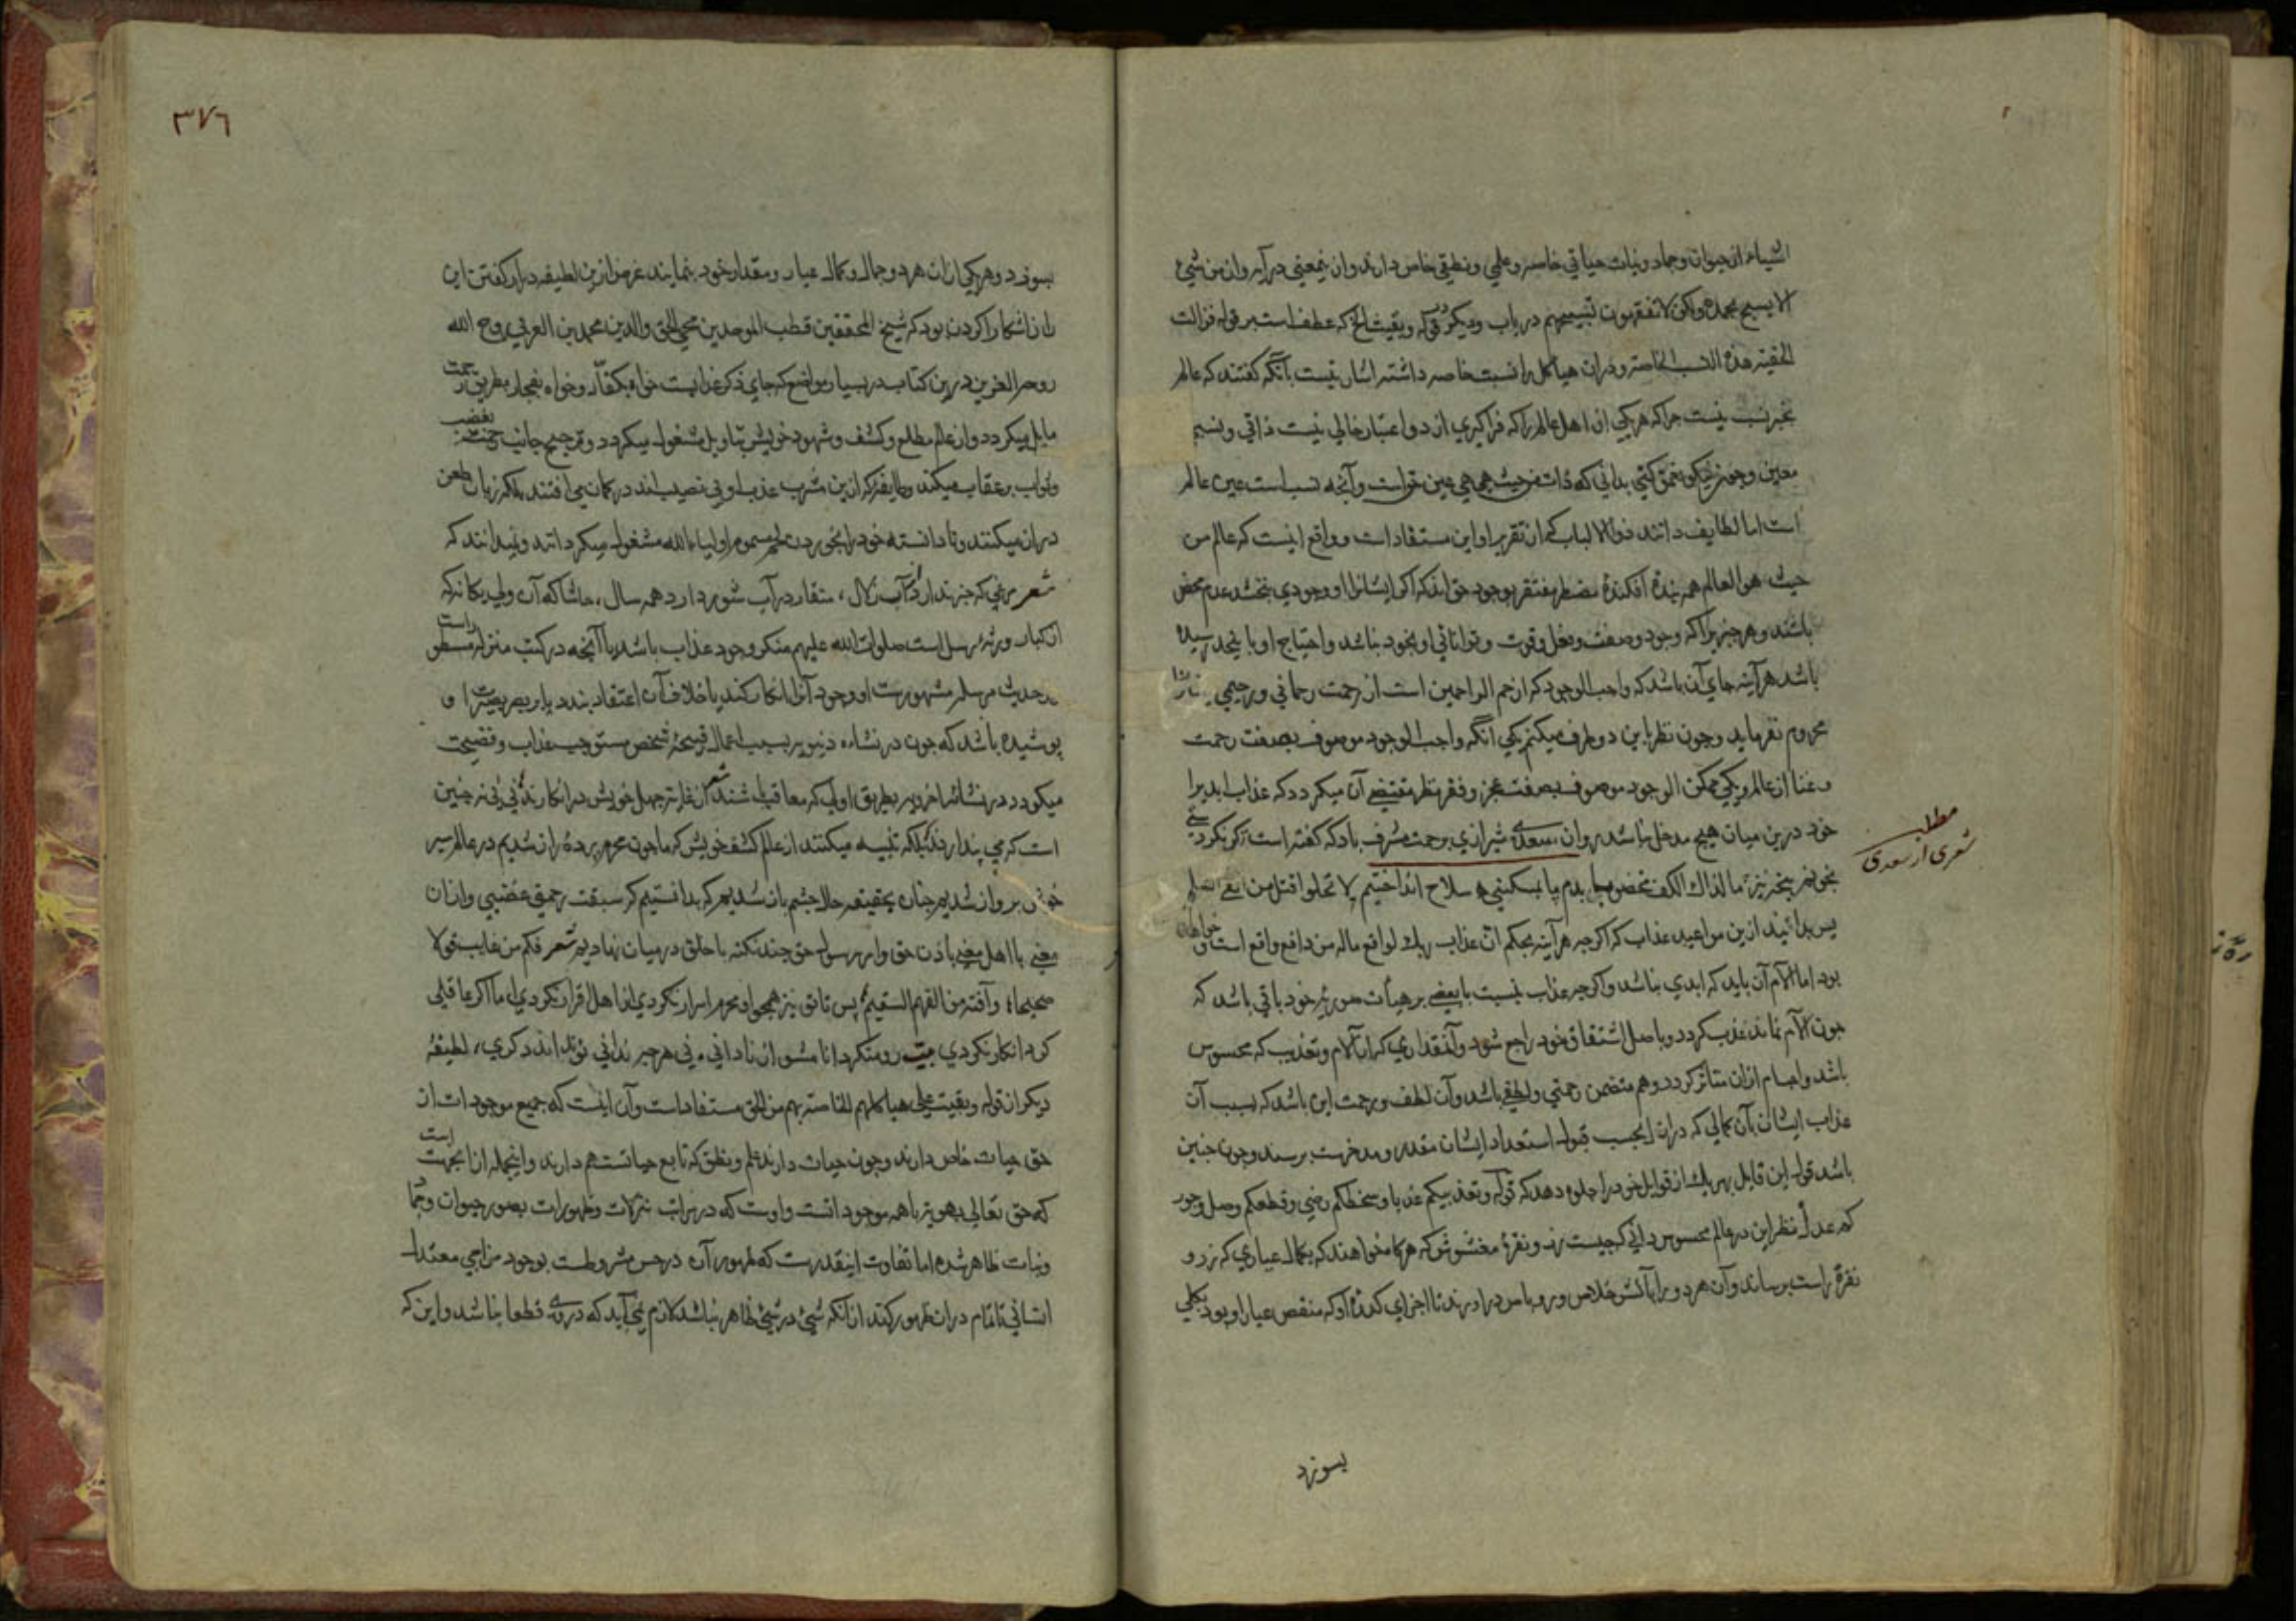 اشیاء از حیوان و جماد و نبات حیاتی خاص و علمی و نطقی خاص دارند و ان بمعنی درآید وان من شیء
الا یسبح بحمده ولکن لا تفقهون تسبیحهم دریاب ودیکر در قوله وبقیت الخ که عطف است بر قوله فزالت
الخفیة هذه النسب الخاصة و دران هیاکل را نسبت خاصه داشته اشارتیست بآنکه کفتند که عالم
بجز نسب نیست جراکه هر یکی از اهل عالم را که فراکیری از دو اعتبار خالی نیست ذاتی و نسبتی
معین وجون نیکو تعمق کنی بدانی که ذات من حیث هی هی عین حق است وآنچه نسب است عین عالم
است اما لطایف دانند ذوالالباب که از تقریر او این مستفاد است و واقع اینست که عالم من
حیث هو العالم همه بنده افکنده مضطر مفتقر بوجود حق اند که اکر ایشانرا او وجودی بخشد عدم محض
باشند وهر جیزیرا که وجود وصفت وفعل وقوت وتوانائی او بخود نباشد واحتیاج او باینحد رسیده
باشد هر آینه جای آن باشد که واجب الوجود که ارحم الراحمین است از رحمت رحمانی و رحیمی
محروم نفرماید وجون نظر باین دو طرف میکنم یکی آنکه واجب الوجود موصوف بصفت رحمت
وغنا از عالم ویکی ممکن الوجود موصوف بصفت عجز وفقر نظر مقتضی آن میکردد که عذاب ابدیرا
خود درین میان هیچ مدخل نباشد روان سعدی شیرازی برحمت مشرف باد که کفته است کر بکرد
بخونم بنجه تیزی ما لذاك الکف مخضوب بدم پا بمسکینی سلاح انداختیم لا تحلوا قتل من القی السلم
پس بدانید ازین مواعید عذاب که اکرجه هر آینه بحکم ان عذاب ربك لواقع ما له من دافع واقع است وخواهد
بود اما آلام آن باید که ابدی نباشد واکرجه عذاب نسبت با بعضی بر هیأت صوریه خود باقی باشد که
جون آلام نماند عذب کردد وبا اصل اشتقاق خود راجع شود وآنقداری که ازان آلام وتعذیب که محسوس
باشد واجسام ازان متاثر کردد وهم متضمن رحمتی ولطفی باشد وآن لطف ورحمت این باشد که بسبب آن
عذاب ایشان بآن کمالی که در ازل بحسب قبول استعداد ایشان مقدر ومدخرست برسند وجون جنین
باشد قول این قایل بهر یك از قوابل خود را جلوه دهد که قوله وتعذیبکم عذب وسخطکم رضی وقطعکم وصل وجور
کم عدل نظر این در عالم محسوس دانی که جیست زر ونقره مغشوش که هرکاه خواهند که بکمال عیاری که زر و
نقره راست برساند وآن هردو را بآتش خلاص وروباس در آورند تا اجزای کدره او که منقص عیار او بود بکلی
بسوزد
مطلب
شعری از سعدی
٣٧٦
بسوزد وهر یکی ازان هردو جمال وکمال عیار ومقدار خود بنمایند غرض ازین لطیفه در کفتن این
راز آشکارا کردن بود که شیخ المحققین قطب الموحدین محیی الحق والدین محمد بن العربی روح الله
روحه العزیز درین کتاب در بسیار مواضع که جای ذکر عذابست خواه بکفار وخواه بفجار بطریق رحمت
مایل میکردد واز عالم مطلع وکشف وشهود خویش بتاویل مشغول میکردد وترجیح جانب رحمت بغضب
وثواب بر عقاب میکند وطایفه که ازین مشرب عذب او بی نصیب اند درکمان می افتند بلکه زبان طعن
دران میکنند ونادانسته خود را بخوردن لحم مسموم اولیاء الله مشغول میکردانند ونمیدانند که
شعر مرغی که خبر ندارد از آب زلال ، منقار در آب شور دارد همه سال ، حاشا که آن ولی یکانه که
از کبار ورثه رسل است صلوات الله علیهم منکر وجود عذاب باشد یا آنچه در کتب منزله مسطور است
در حدیث مرسل مشهورست او وجود آنرا انکار کند یا خلاف آن اعتقاد بندد یا بر بصر بصیرت او
پوشیده باشد که جون در نشاءه دنیویه بسبب اعمال قبیحه شخص مستوجب عذاب وفضیحت
میکردد در نشأته اخرویه بطریق اولی که معاقب باشند شعر از غایت جهل خویش در انکارند نی نی نه جنین
است که می پندارند بلکه تنبیه میکنند از عالم کشف خویش که ما جون محرم پرده راز شدیم در عالم سیر
خوش پرواز شدیم جنان بحقیقة حال جشم باز شدیم که بدانستیم که سبقت رحمتی غضبی وازان
معنی با اهل معنی باذن حق وامر رسول حق جند نکته با خلق درمیان نهادیم شعر فکم من عایب قولا
صحیحا وآفته من الفهم السقیم پس تا تو نیز همجو او محرم اسرار نکردی از اهل اقرار نکردی اما اکر عاقلی
کرد انکار نکردی بیت رو منکر دانا مشو از نادانی ، نی هرچه ندانی تو نداند دکری ، لطیفه
دیکر از قوله وبقیت علی هیاکلهم الخاصة بهم من الحق مستفادست وآن اینست که جمیع موجودات از
حق حیات خاص دارند وجون حیات دارند علم ونطق که تابع حیاتست هم دارند واینجمله ازانجهت است
که حق تعالی بهویته باهمه موجوداتست واوست که در مراتب تنزلات وظهورات بصور حیوان وجماد
ونبات ظاهر شده اما تفاوت اینقدرست که ظهور آن در حس مشروطست بوجود مزاجی معتدل
انسانی تا تمام دران ظهور کند ازانکه شیء در شیء ظاهر نباشد لازم نمی آید که در وی قطعا نباشد واین که